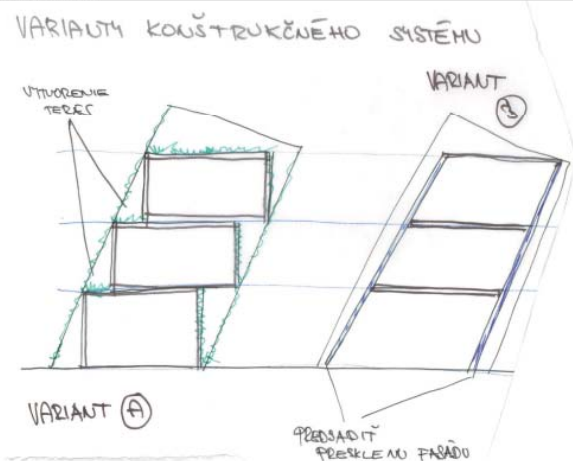 VARIANTY KONŠTRUKČNÉHO SYSTÉMU
VYTVORENIE
TERÁS
VARIANT
B
VARIANT A
PREDSADIŤ
PRESKLENÚ FASÁDU